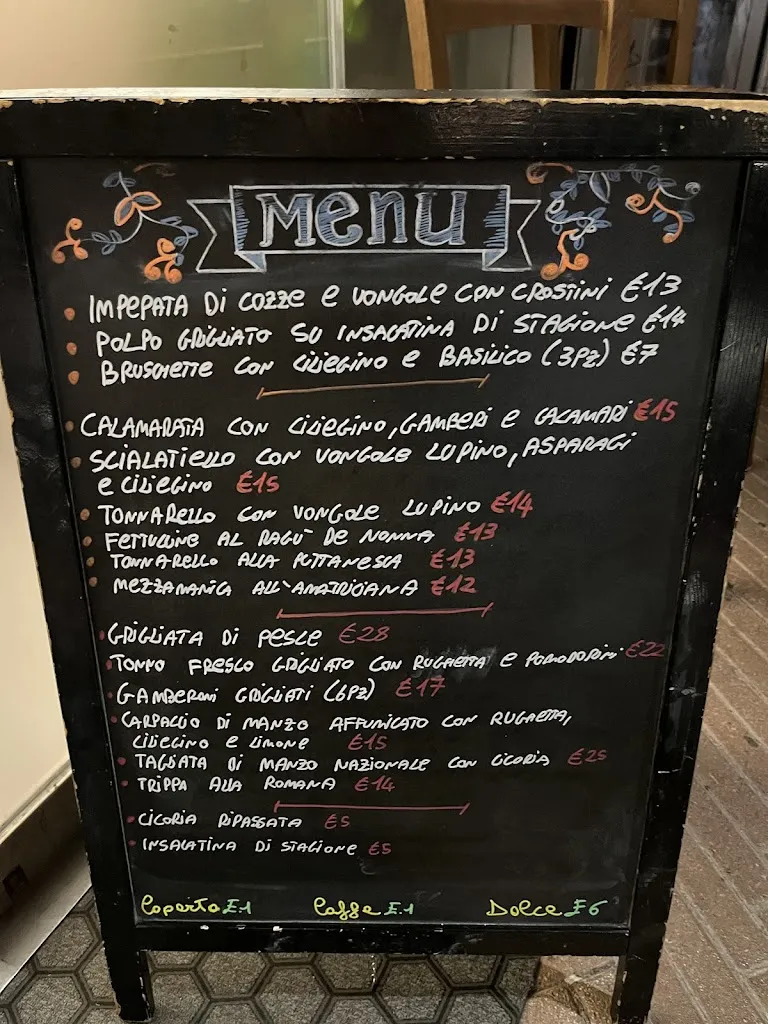 MENU
IMPEPATA DI COZZE E VONGOLE CON CROSTINI €13
POLPO GRIGLIATO SU INSALATINA DI STAGIONE €14
BRUSCHETTE CON CILIEGINO E BASILICO (3PZ) €7
CALAMARATA CON CILIEGINO, GAMBERI E CALAMARI €15
SCIALATIELLO CON VONGOLE LUPINO, ASPARAGI
E CILIEGINO €15
TONNARELLO CON VONGOLE LUPINO €14
FETTUCCINE AL RAGU' DE NONNA €13
TONNARELLO ALLA PUTTANESCA €13
MEZZAMANICA ALL'AMATRICIANA €12
GRIGLIATA DI PESCE €28
TONNO FRESCO GRIGLIATO CON RUGHETTA E POMODORINI €22
GAMBERONI GRIGLIATI (6PZ) €17
CARPACCIO DI MANZO AFFUMICATO CON RUGHETTA,
CILIEGINO E LIMONE €15
TAGLIATA DI MANZO NAZIONALE CON CICORIA €25
TRIPPA ALLA ROMANA €14
CICORIA RIPASSATA €5
INSALATINA DI STAGIONE €5
Coperto €.1 Caffe €.1 Dolce €6